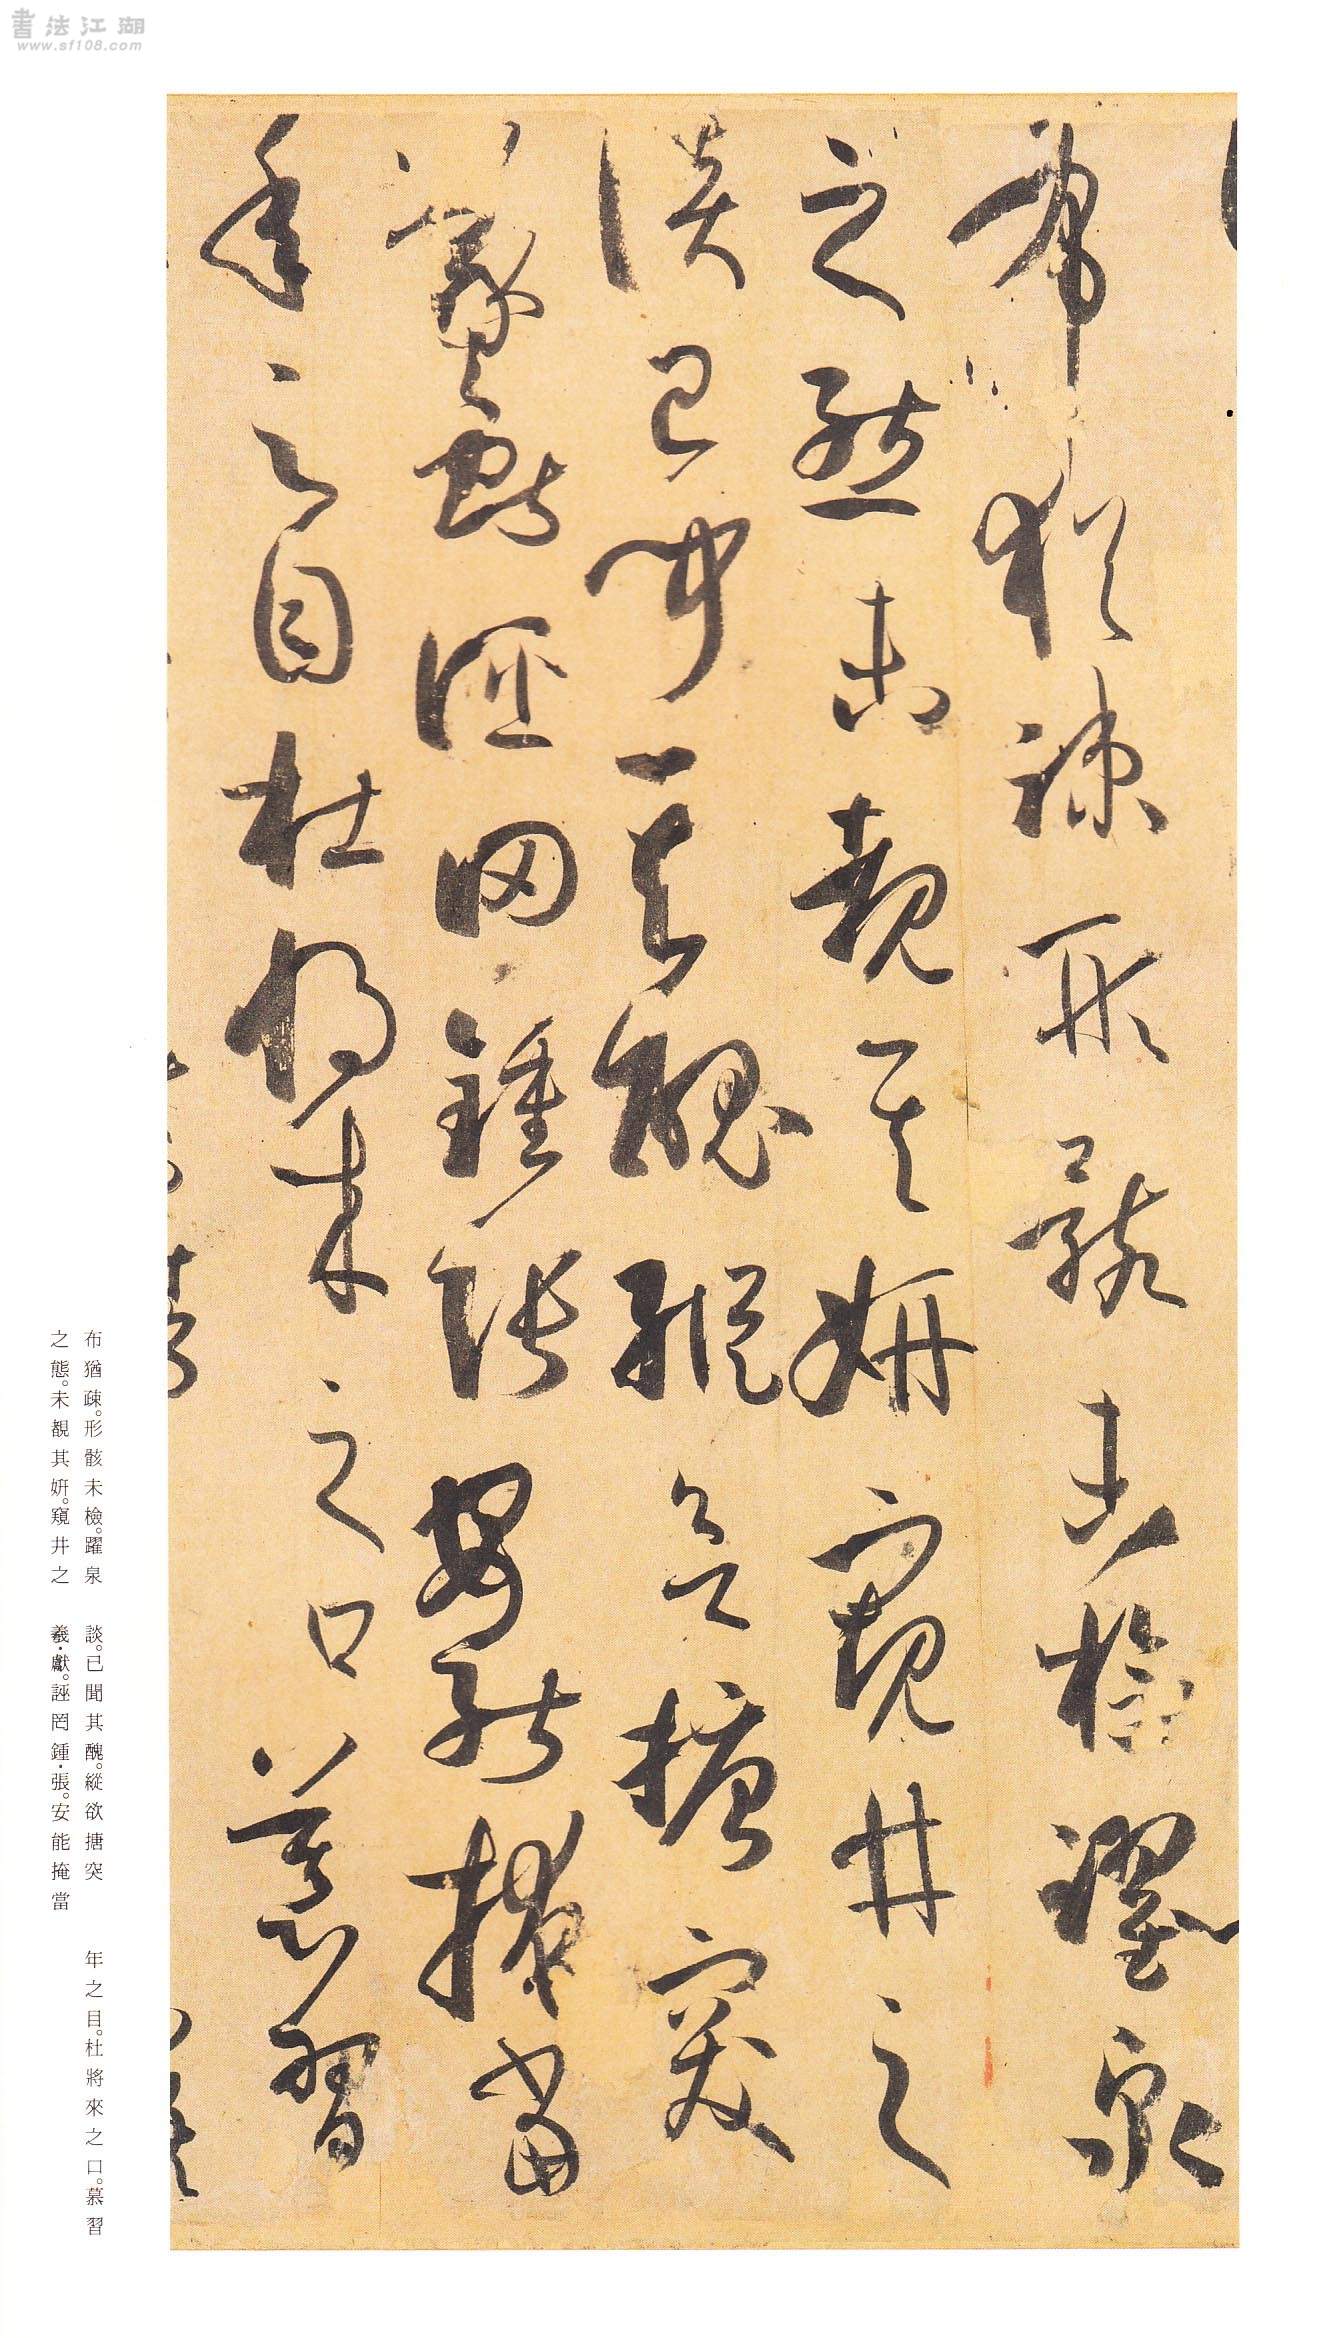 書法江湖
www.sf108.com
布猶疎形骸未檢躍泉
之態未覩其妍窺井之
談已聞其醜縱欲搪突
羲獻誣罔鍾張安能掩當
年之目杜將來之口慕習
布猶疎。形骸未檢。躍泉
之態。未覩其妍。窺井之
談。已聞其醜。縱欲搪突
羲·獻。誣罔鍾·張。安能掩當
年之目。杜將來之口。慕習